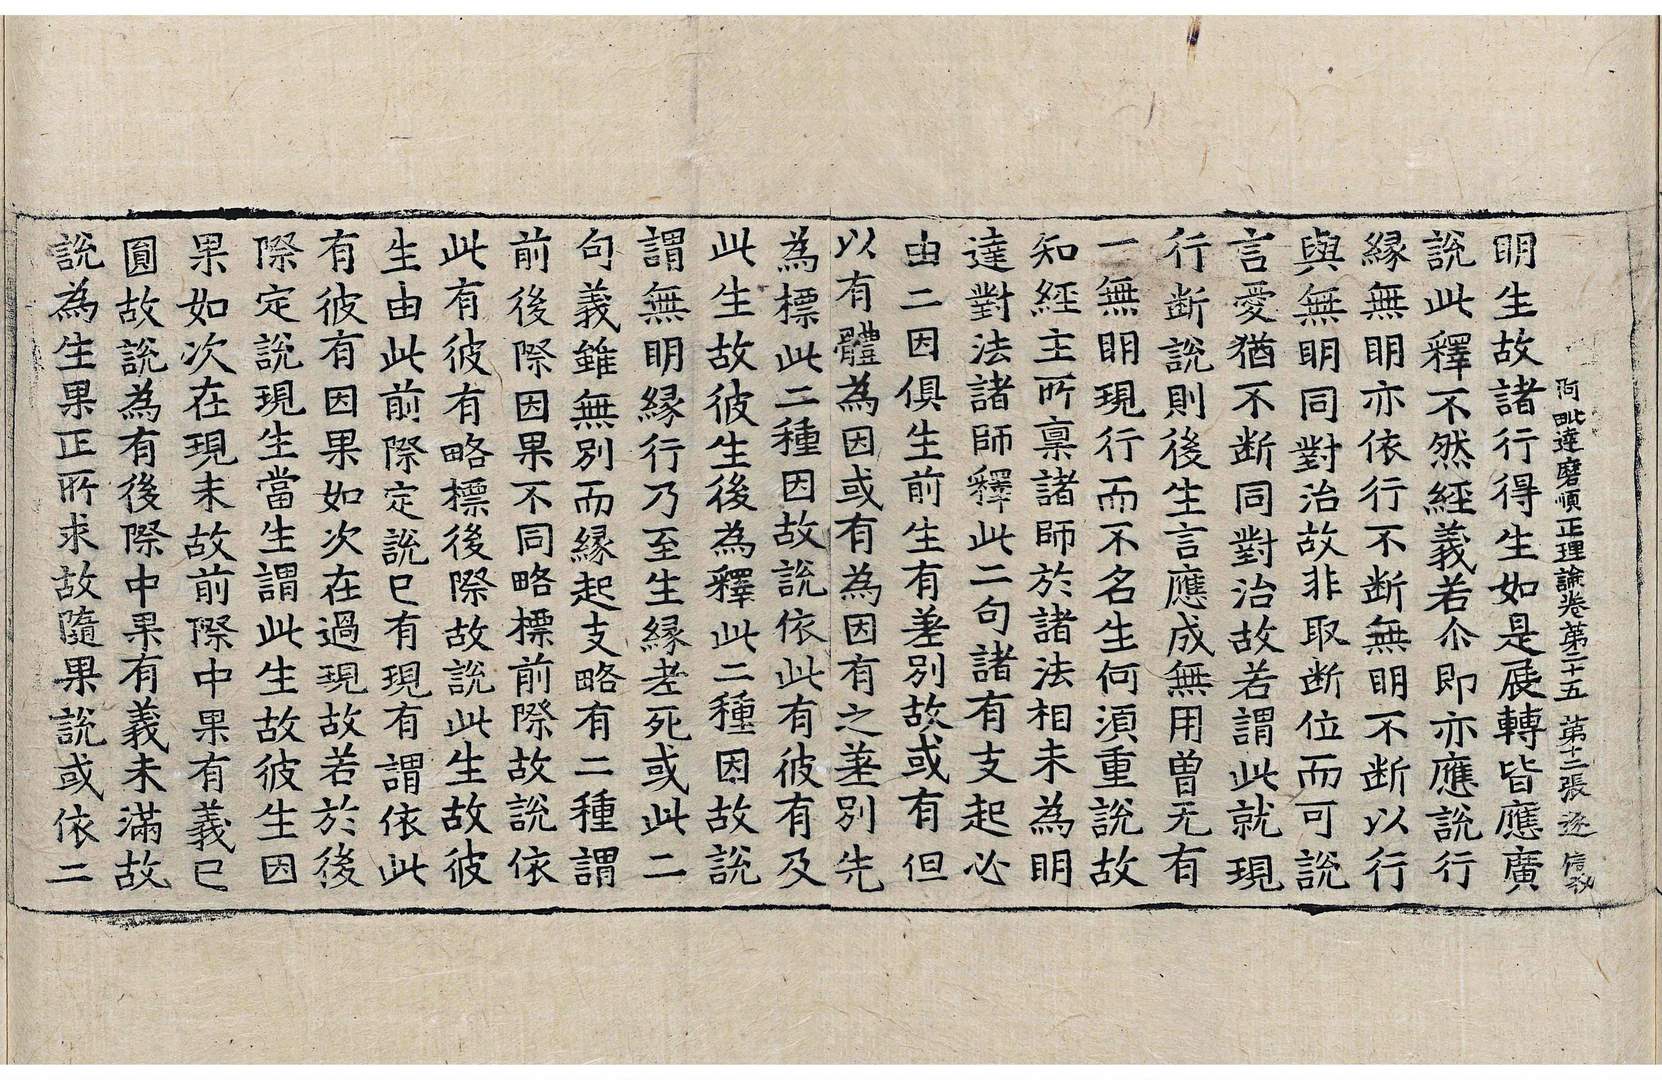 阿毗達磨順正理論卷第二十五 第十二張 逐 信敬
明生故諸行得生如是展轉皆應廣
說此釋不然經義若尒即亦應說行
縁無明亦依行不断無明不断以行
與無明同對治故非取断位而可說
言愛猶不断同對治故若謂此就現
行断說則後生言應成無用曾无有
一無明現行而不名生何湏重說故
知經主所稟諸師於諸法相未為明
達對法諸師釋此二句諸有支起必
由二因俱生前生有差別故或有但
以有體為因或有為因有之差別先
為標此二種因故說依此有彼有及
此生故彼生後為釋此二種因故說
謂無明縁行乃至生縁老死或此二
句義雖無別而縁起支略有二種謂
前後際因果不同略標前際故說依
此有彼有略標後際故說此生故彼
生由此前際定說已有現有謂依此
有彼有因果如次在過現故若於後
際定說現生當生謂此生故彼生因
果如次在現未故前際中果有義已
圓故說為有後際中果有義未滿故
說為生果正所求故隨果說或依二